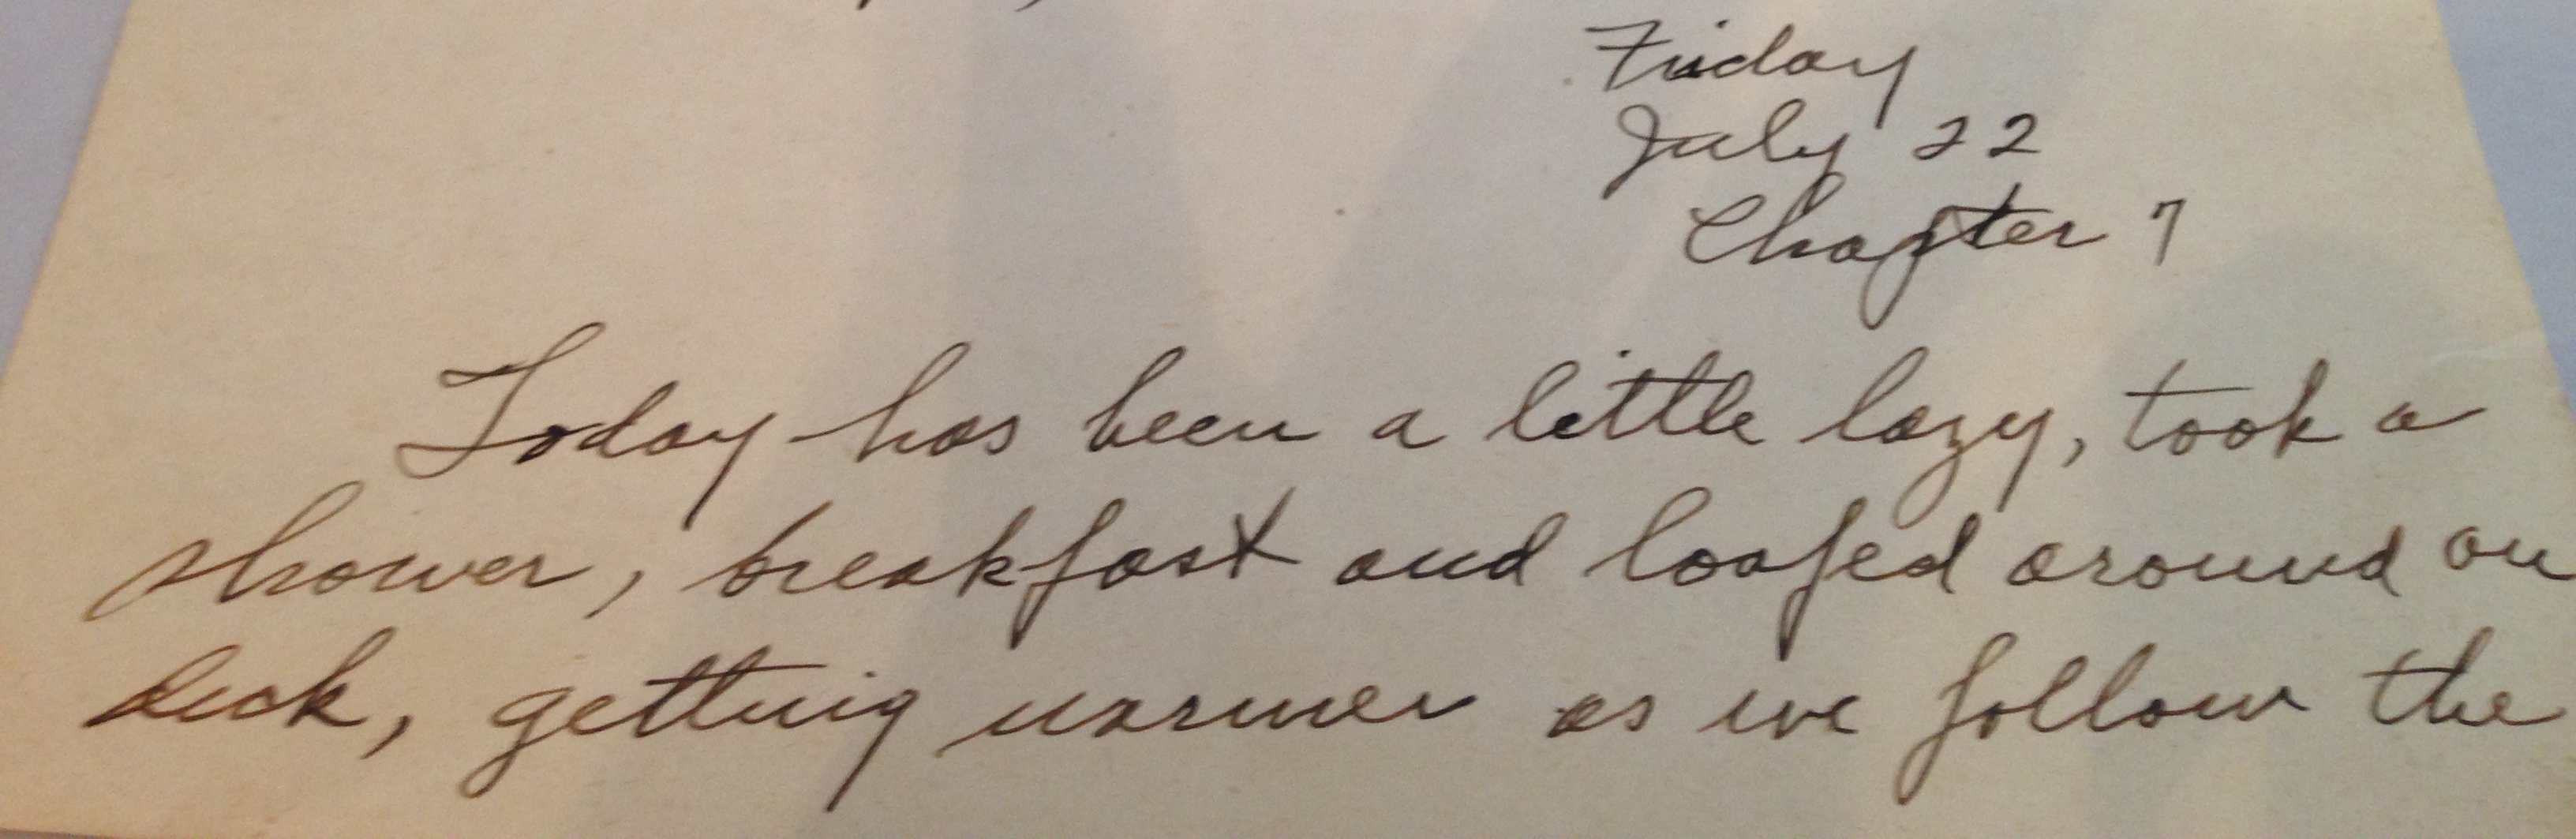 Friday
July 22
Chapter 7
Today has been a little lazy, took a
shower, breakfast and loafed around on
deck, getting warmer as we follow the